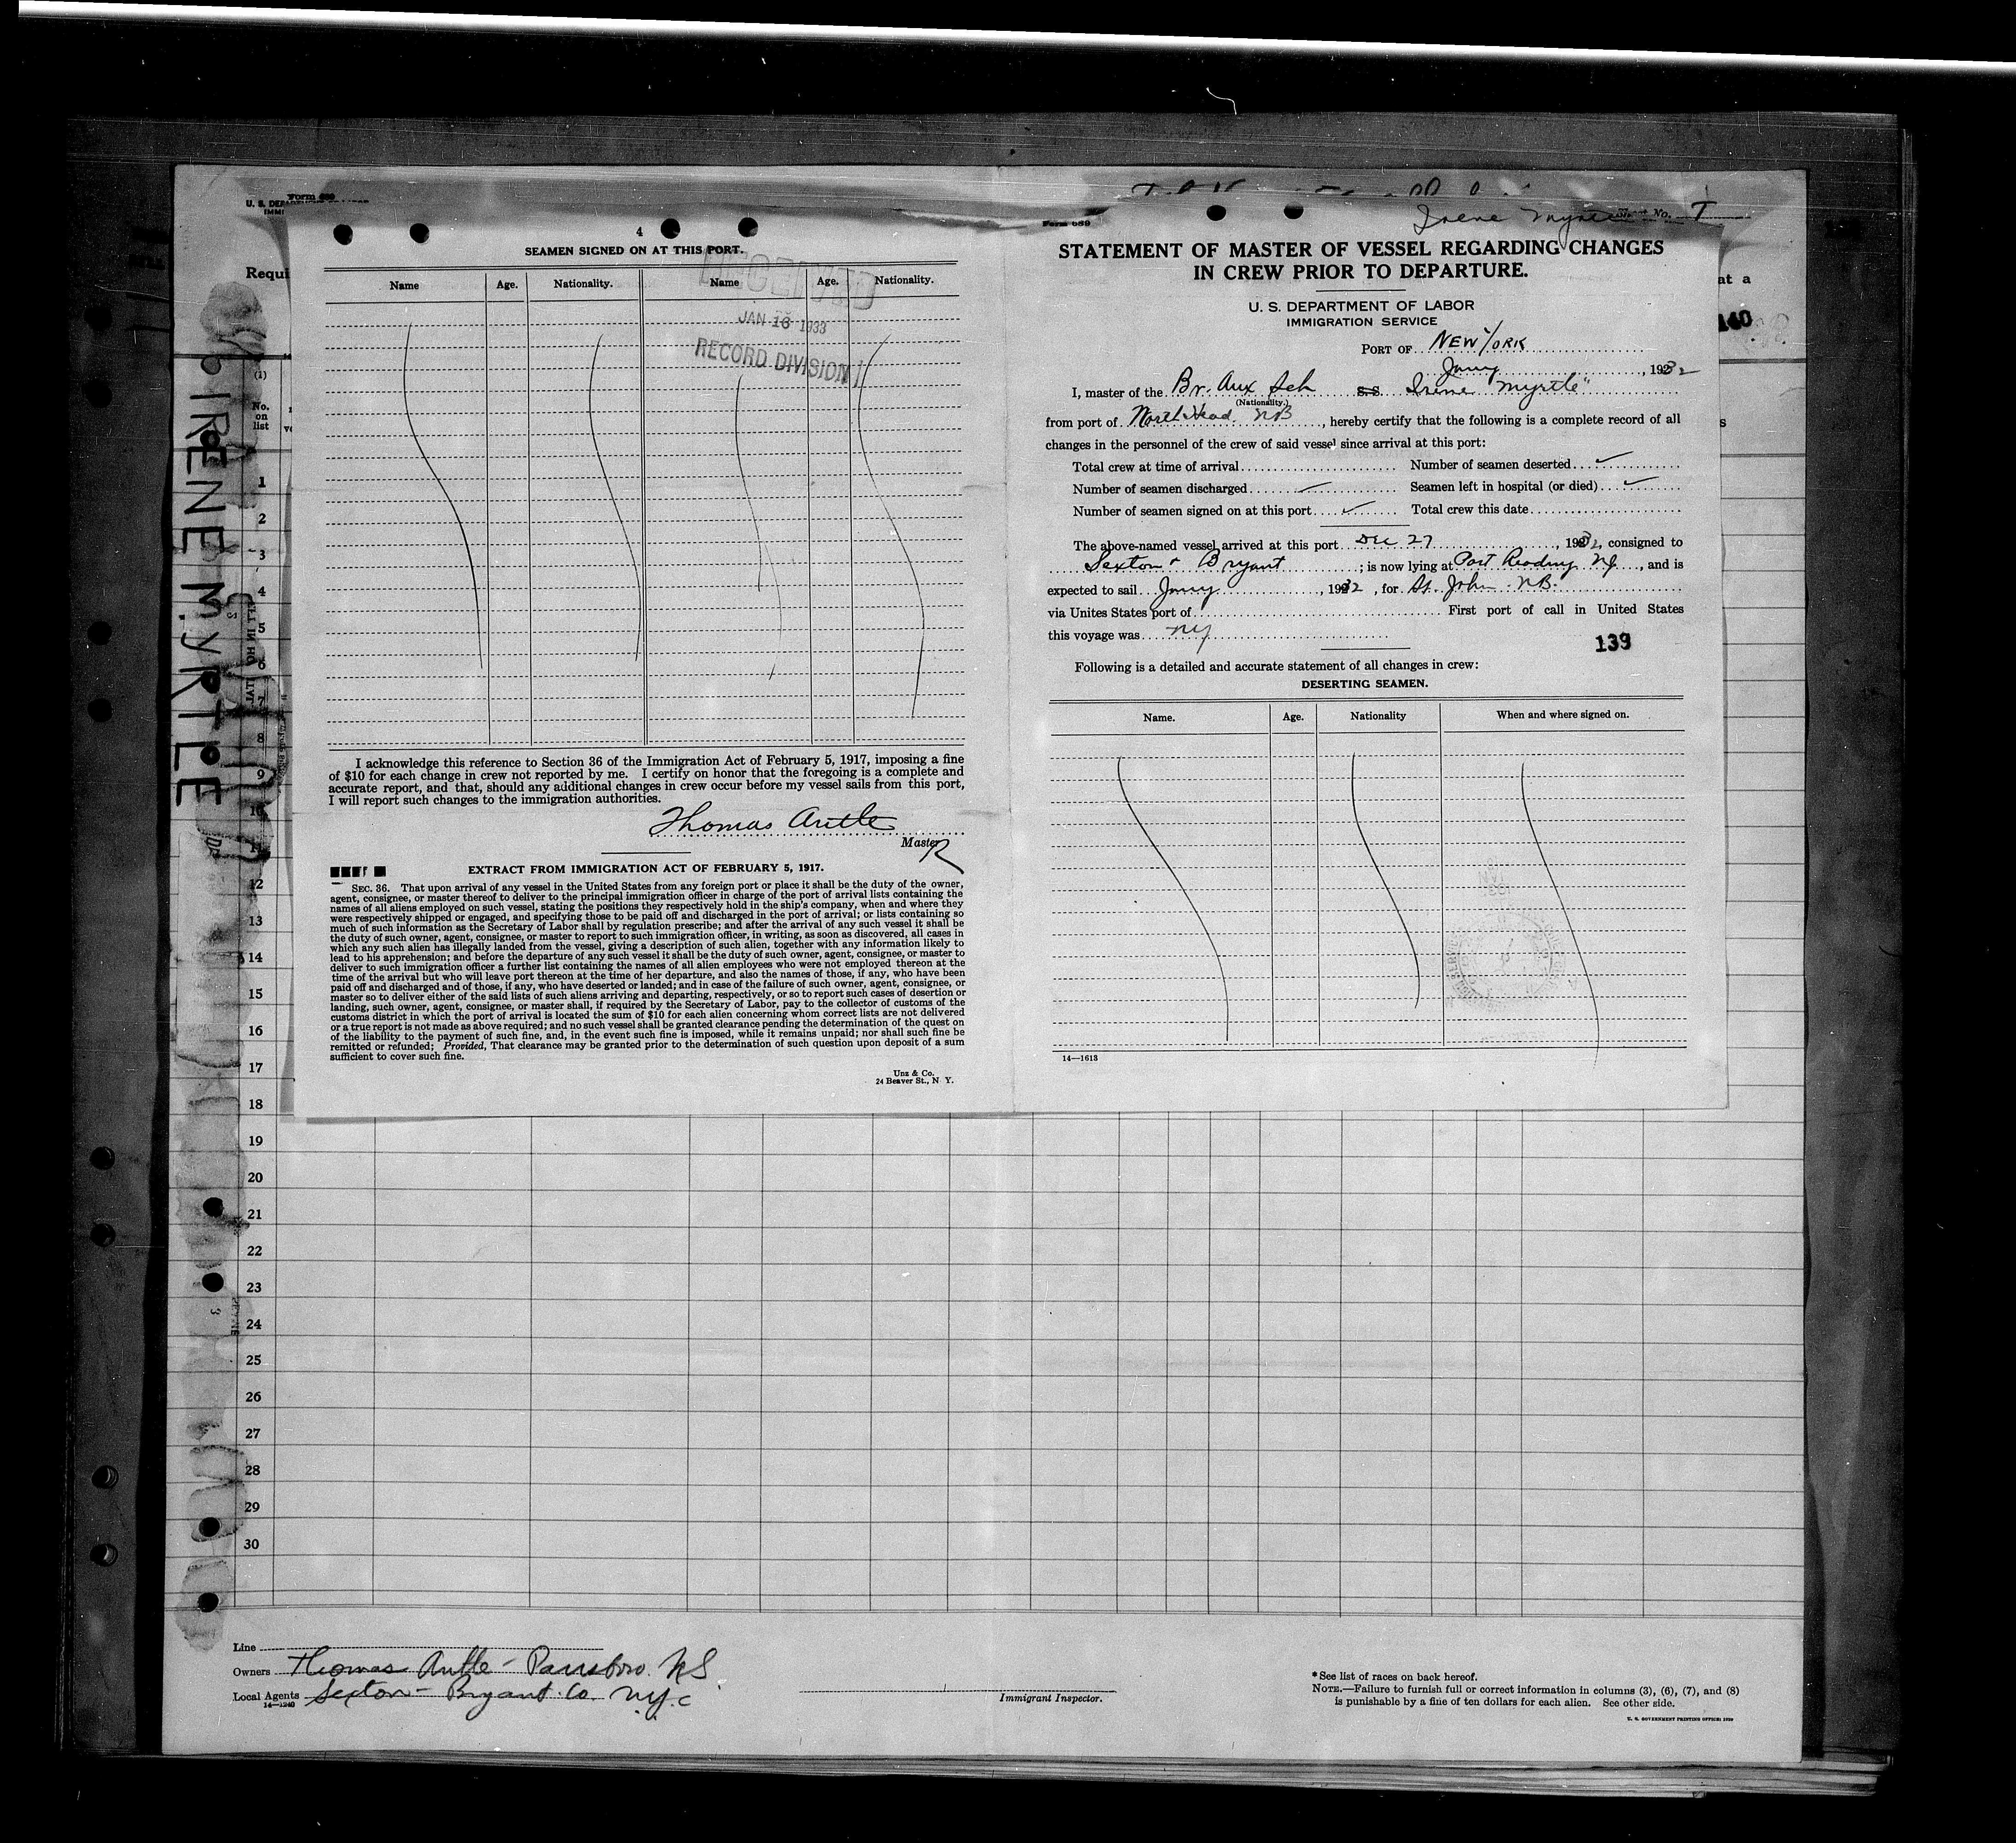 Form 689
U. S. DEPARTMENT OF LABOR
IMMI
Requi
(1)
No.
on
list
IRENE MYRTLE
4
SEAMEN SIGNED ON AT THIS PORT.
Name Age. Nationality. Name Age. Nationality.
RECEIVED
JAN 16 1933
RECORD DIVISION
I acknowledge this reference to Section 36 of the Immigration Act of February 5, 1917, imposing a fine
of $10 for each change in crew not reported by me. I certify on honor that the foregoing is a complete and
accurate report, and that, should any additional changes in crew occur before my vessel sails from this port,
I will report such changes to the immigration authorities.
Thomas Antle
Master
EXTRACT FROM IMMIGRATION ACT OF FEBRUARY 5, 1917.
SEC. 36. That upon arrival of any vessel in the United States from any foreign port or place it shall be the duty of the owner,
agent, consignee, or master thereof to deliver to the principal immigration officer in charge of the port of arrival lists containing the
names of all aliens employed on such vessel, stating the positions they respectively hold in the ship's company, when and where they
were respectively shipped or engaged, and specifying those to be paid off and discharged in the port of arrival; or lists containing so
much of such information as the Secretary of Labor shall by regulation prescribe; and after the arrival of any such vessel it shall be
the duty of such owner, agent, consignee, or master to report to such immigration officer, in writing, as soon as discovered, all cases in
which any such alien has illegally landed from the vessel, giving a description of such alien, together with any information likely to
lead to his apprehension; and before the departure of any such vessel it shall be the duty of such owner, agent, consignee, or master to
deliver to such immigration officer a further list containing the names of all alien employees who were not employed thereon at the
time of the arrival but who will leave port thereon at the time of her departure, and also the names of those, if any, who have been
paid off and discharged and of those, if any, who have deserted or landed; and in case of the failure of such owner, agent, consignee, or
master so to deliver either of the said lists of such aliens arriving and departing, respectively, or so to report such cases of desertion or
landing, such owner, agent, consignee, or master shall, if required by the Secretary of Labor, pay to the collector of customs of the
customs district in which the port of arrival is located the sum of $10 for each alien concerning whom correct lists are not delivered
or a true report is not made as above required; and no such vessel shall be granted clearance pending the determination of the quest on
of the liability to the payment of such fine, and, in the event such fine is imposed, while it remains unpaid; nor shall such fine be
remitted or refunded; Provided, That clearance may be granted prior to the determination of such question upon deposit of a sum
sufficient to cover such fine.
Unz & Co.
24 Beaver St., N Y.
Form 689
Irene Myrtle
No. T
STATEMENT OF MASTER OF VESSEL REGARDING CHANGES
IN CREW PRIOR TO DEPARTURE.
U. S. DEPARTMENT OF LABOR
IMMIGRATION SERVICE
PORT OF NEW YORK
Jany, 1932
I, master of the Br. Aux Sch S.S. Irene Myrtle"
(Nationality.)
from port of North Head NB, hereby certify that the following is a complete record of all
changes in the personnel of the crew of said vessel since arrival at this port:
Total crew at time of arrival Number of seamen deserted ✓
Number of seamen discharged ✓ Seamen left in hospital (or died) ✓
Number of seamen signed on at this port ✓ Total crew this date
The above-named vessel arrived at this port Dec 27, 1932, consigned to
Sexton & Bryant; is now lying at Port Reading NJ, and is
expected to sail Jany, 1932, for St. John NB.
via Unites States port of First port of call in United States
this voyage was NY
139
Following is a detailed and accurate statement of all changes in crew:
DESERTING SEAMEN.
Name. Age. Nationality When and where signed on.
14—1613
at a
140
s
1
2
3
4
5
6
7
8
9
10
11
12
13
14
15
16
17
18
19
20
21
22
23
24
25
26
27
28
29
30
Line
Owners Thomas Antle - Parrsboro. NS
Local Agents Sexton - Bryant Co NY.C
14—1240
Immigrant Inspector.
*See list of races on back hereof.
NOTE.—Failure to furnish full or correct information in columns (3), (6), (7), and (8)
is punishable by a fine of ten dollars for each alien. See other side.
U. S. GOVERNMENT PRINTING OFFICE: 1929